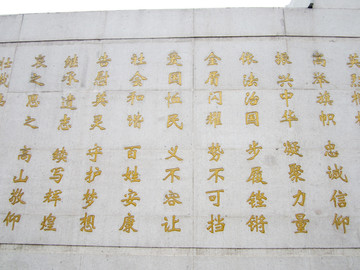 高举旗帜 忠诚信仰
振兴中华 凝聚力量
依法治国 步履铿锵
金盾闪耀 势不可挡
爱国恤民 义不容让
社会和谐 百姓安康
告慰英灵 守护梦想
继承遗志 续写辉煌
哀之思之 高山敬仰